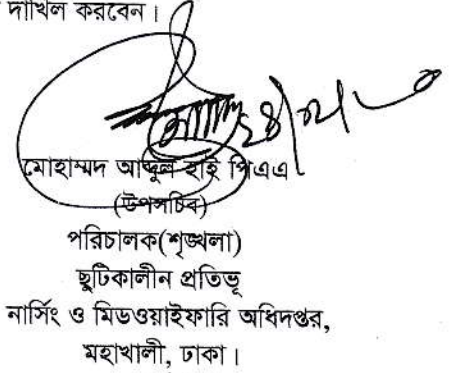 দাখিল করবেন।
মোহাম্মদ আব্দুল হাই পিএএ
(উপসচিব)
পরিচালক(শৃঙ্খলা)
ছুটিকালীন প্রতিভূ
নার্সিং ও মিডওয়াইফারি অধিদপ্তর,
মহাখালী, ঢাকা।